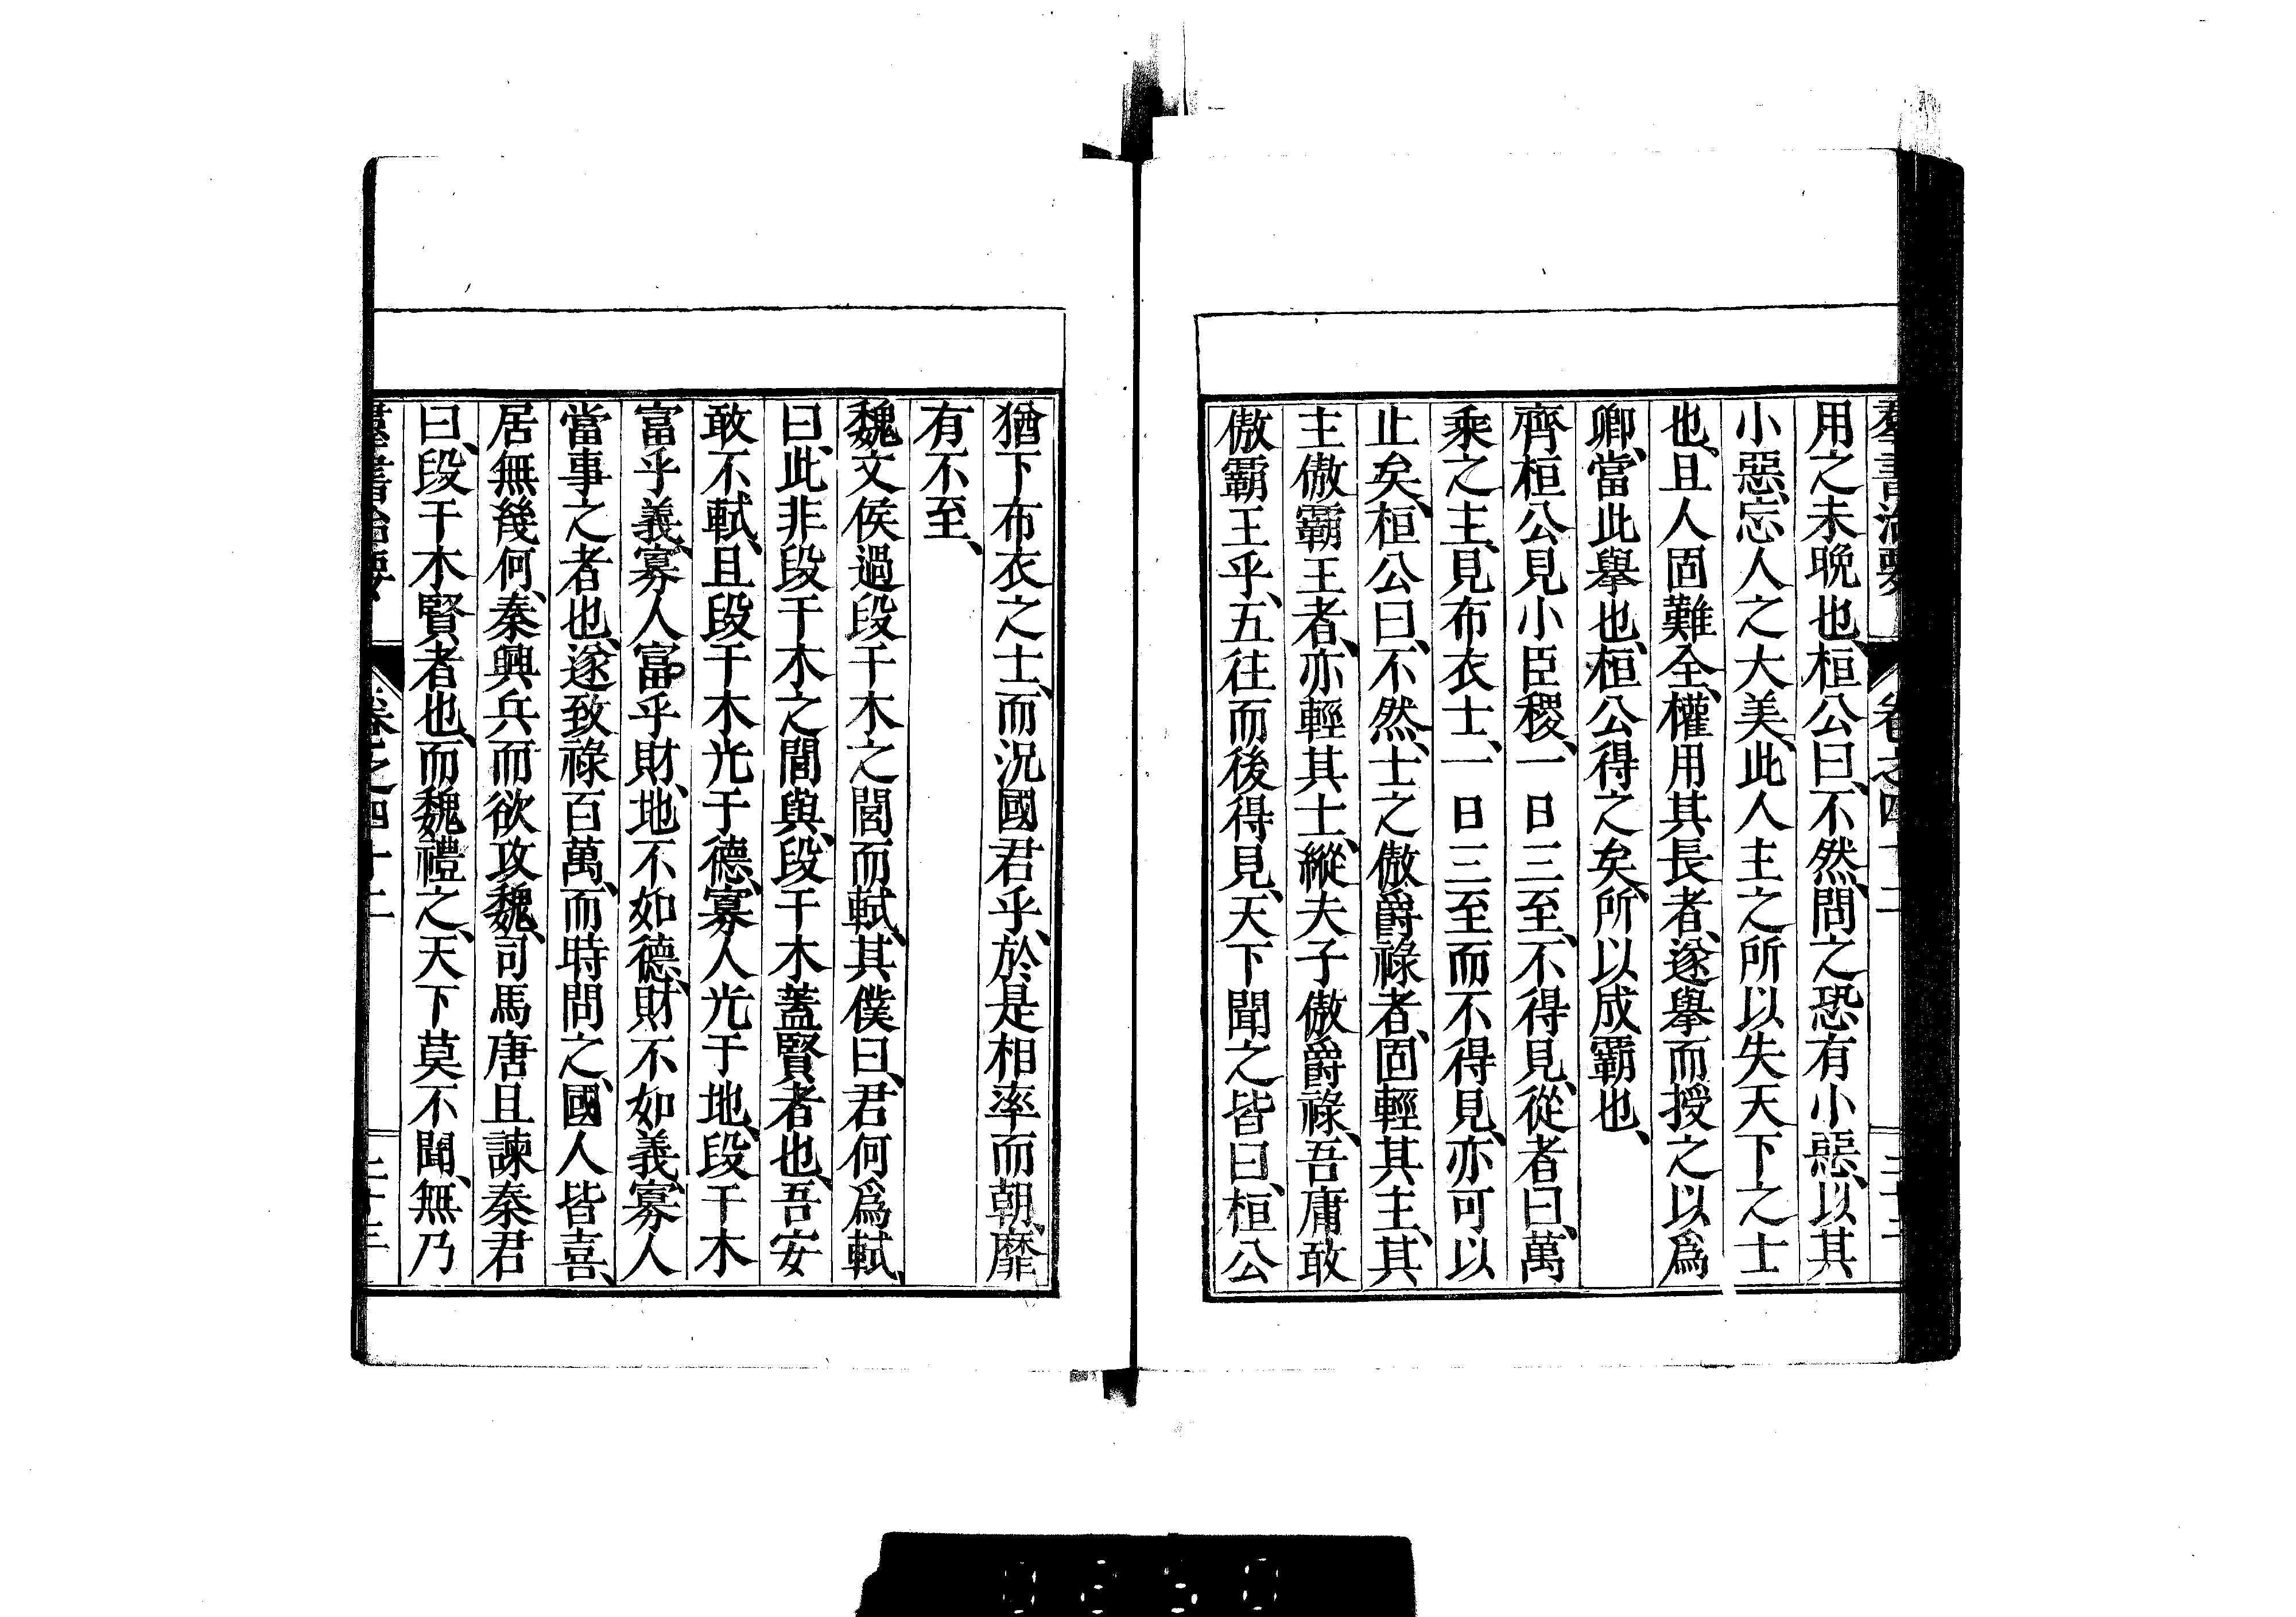 羣書治要 卷之四十二
用之未晚也、桓公曰、不然、問之恐有小惡、以其
小惡、忘人之大美、此人主之所以失天下之士
也、且人固難全、權用其長者、遂擧而授之以爲
卿、當此擧也、桓公得之矣、所以成霸也、
齊桓公見小臣稷、一日三至、不得見、從者曰、萬
乘之主、見布衣士、一日三至而不得見、亦可以
止矣、桓公曰、不然、士之傲爵祿者、固輕其主、其
主傲霸王者、亦輕其士、縱夫子傲爵祿、吾庸敢
傲霸王乎、五往而後得見、天下聞之皆曰、桓公
猶下布衣之士、而況國君乎、於是相率而朝、靡
有不至、
魏文侯過段干木之閭而軾、其僕曰、君何爲軾、
曰、此非段干木之閭與、段干木蓋賢者也、吾安
敢不軾、且段干木光于德、寡人光于地、段干木
富乎義、寡人富乎財、地不如德、財不如義、寡人
當事之者也、遂致祿百萬、而時問之、國人皆喜、
居無幾何、秦興兵而欲攻魏、司馬唐且諫秦君
曰、段干木賢者也、而魏禮之、天下莫不聞、無乃
羣書治要 卷之四十二